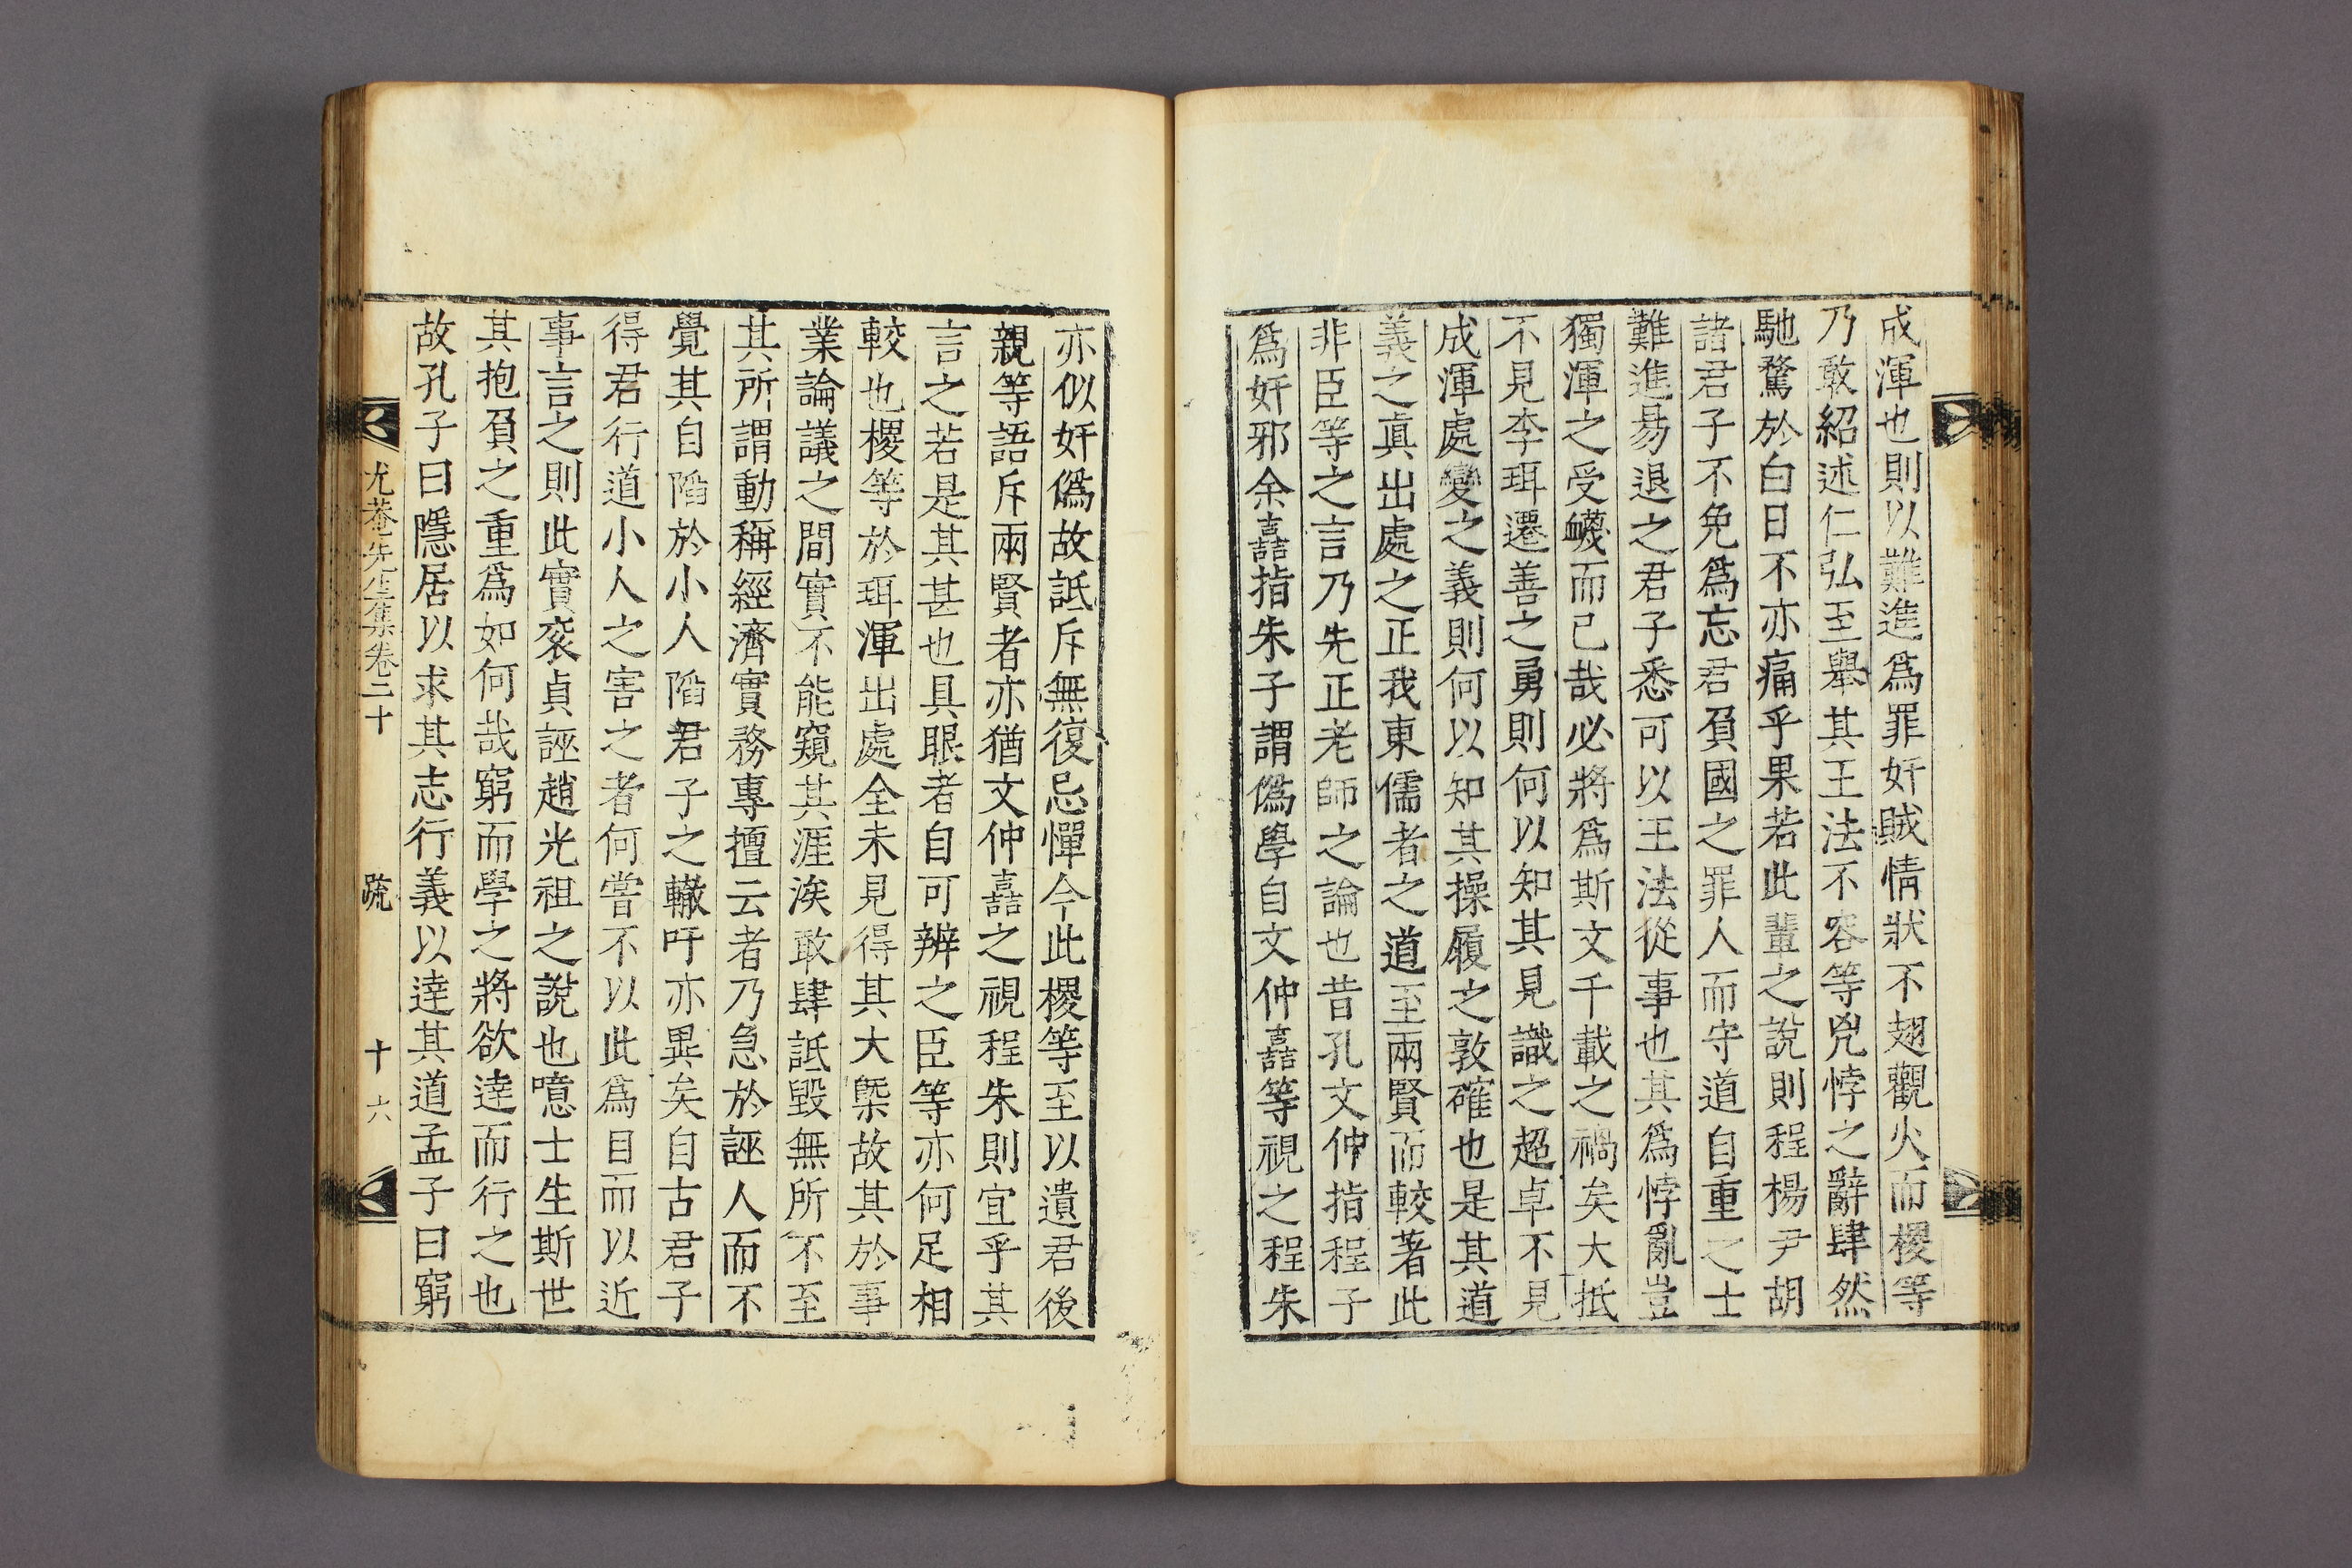 成渾也則以難進爲罪奸賊情狀不翅觀火而㮨等
乃敢紹述仁弘至舉其王法不容等兇悖之辭肆然
馳騖於白日不亦痛乎果若此輩之說則程楊尹胡
諸君子不免爲忘君負國之罪人而守道自重之士
難進易退之君子悉可以王法從事也其爲悖亂豈
獨渾之受衊而已哉必將爲斯文千載之禍矣大抵
不見李珥遷善之勇則何以知其見識之超卓不見
成渾處變之義則何以知其操履之敦確也是其道
義之眞出處之正我東儒者之道至兩賢而較著此
非臣等之言乃先正老師之論也昔孔文仲指程子
爲奸邪余嚞指朱子謂僞學自文仲嚞等視之程朱
亦似奸僞故詆斥無復忌憚今此㮨等至以遺君後
親等語斥兩賢者亦猶文仲嚞之視程朱則宜乎其
言之若是其甚也具眼者自可辨之臣等亦何足相
較也㮨等於珥渾出處全未見得其大槩故其於事
業論議之間實不能窺其涯涘敢肆詆毀無所不至
其所謂動稱經濟實務專擅云者乃急於誣人而不
覺其自陷於小人陷君子之轍吁亦異矣自古君子
得君行道小人之害之者何嘗不以此爲目而以近
事言之則此實袞貞誣趙光祖之說也噫士生斯世
其抱負之重爲如何哉窮而學之將欲達而行之也
故孔子曰隱居以求其志行義以達其道孟子曰窮
尤菴先生集卷二十 疏 十六